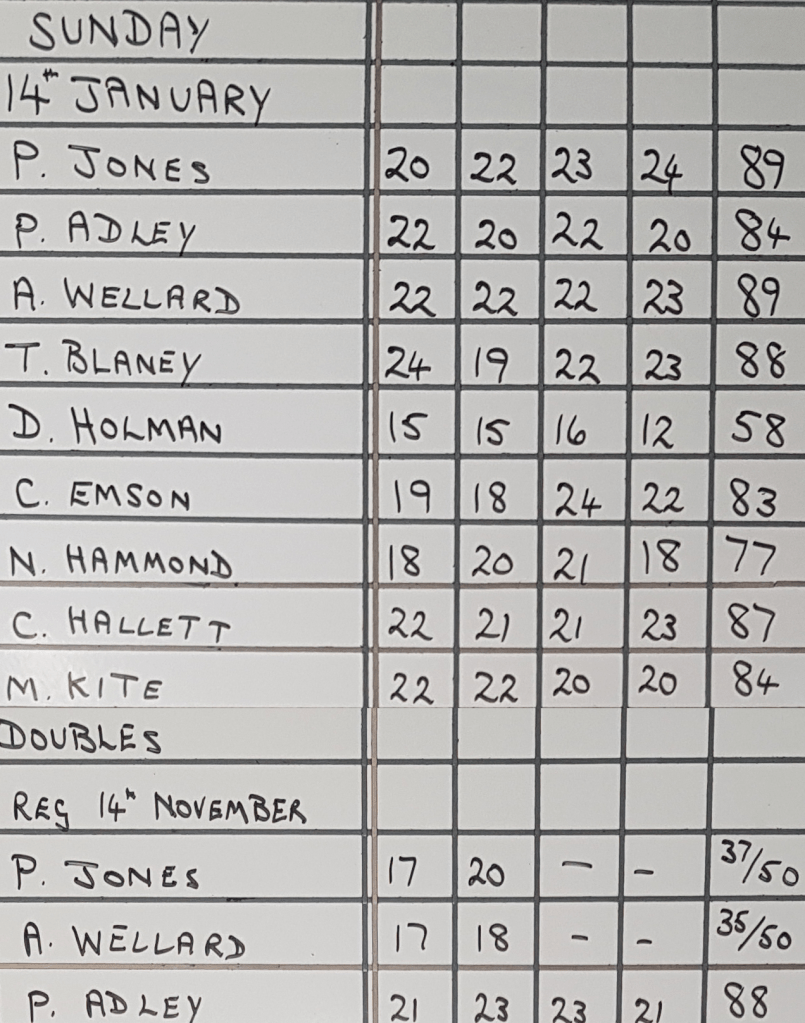 SUNDAY
14th JANUARY
P. JONES 20 22 23 24 89
P. ADLEY 22 20 22 20 84
A. WELLARD 22 22 22 23 89
T. BLANEY 24 19 22 23 88
D. HOLMAN 15 15 16 12 58
C. EMSON 19 18 24 22 83
N. HAMMOND 18 20 21 18 77
C. HALLETT 22 21 21 23 87
M. KITE 22 22 20 20 84
DOUBLES
REG 14th NOVEMBER
P. JONES 17 20 – – 37/50
A. WELLARD 17 18 - - 35/50
P. ADLEY 21 23 23 21 88